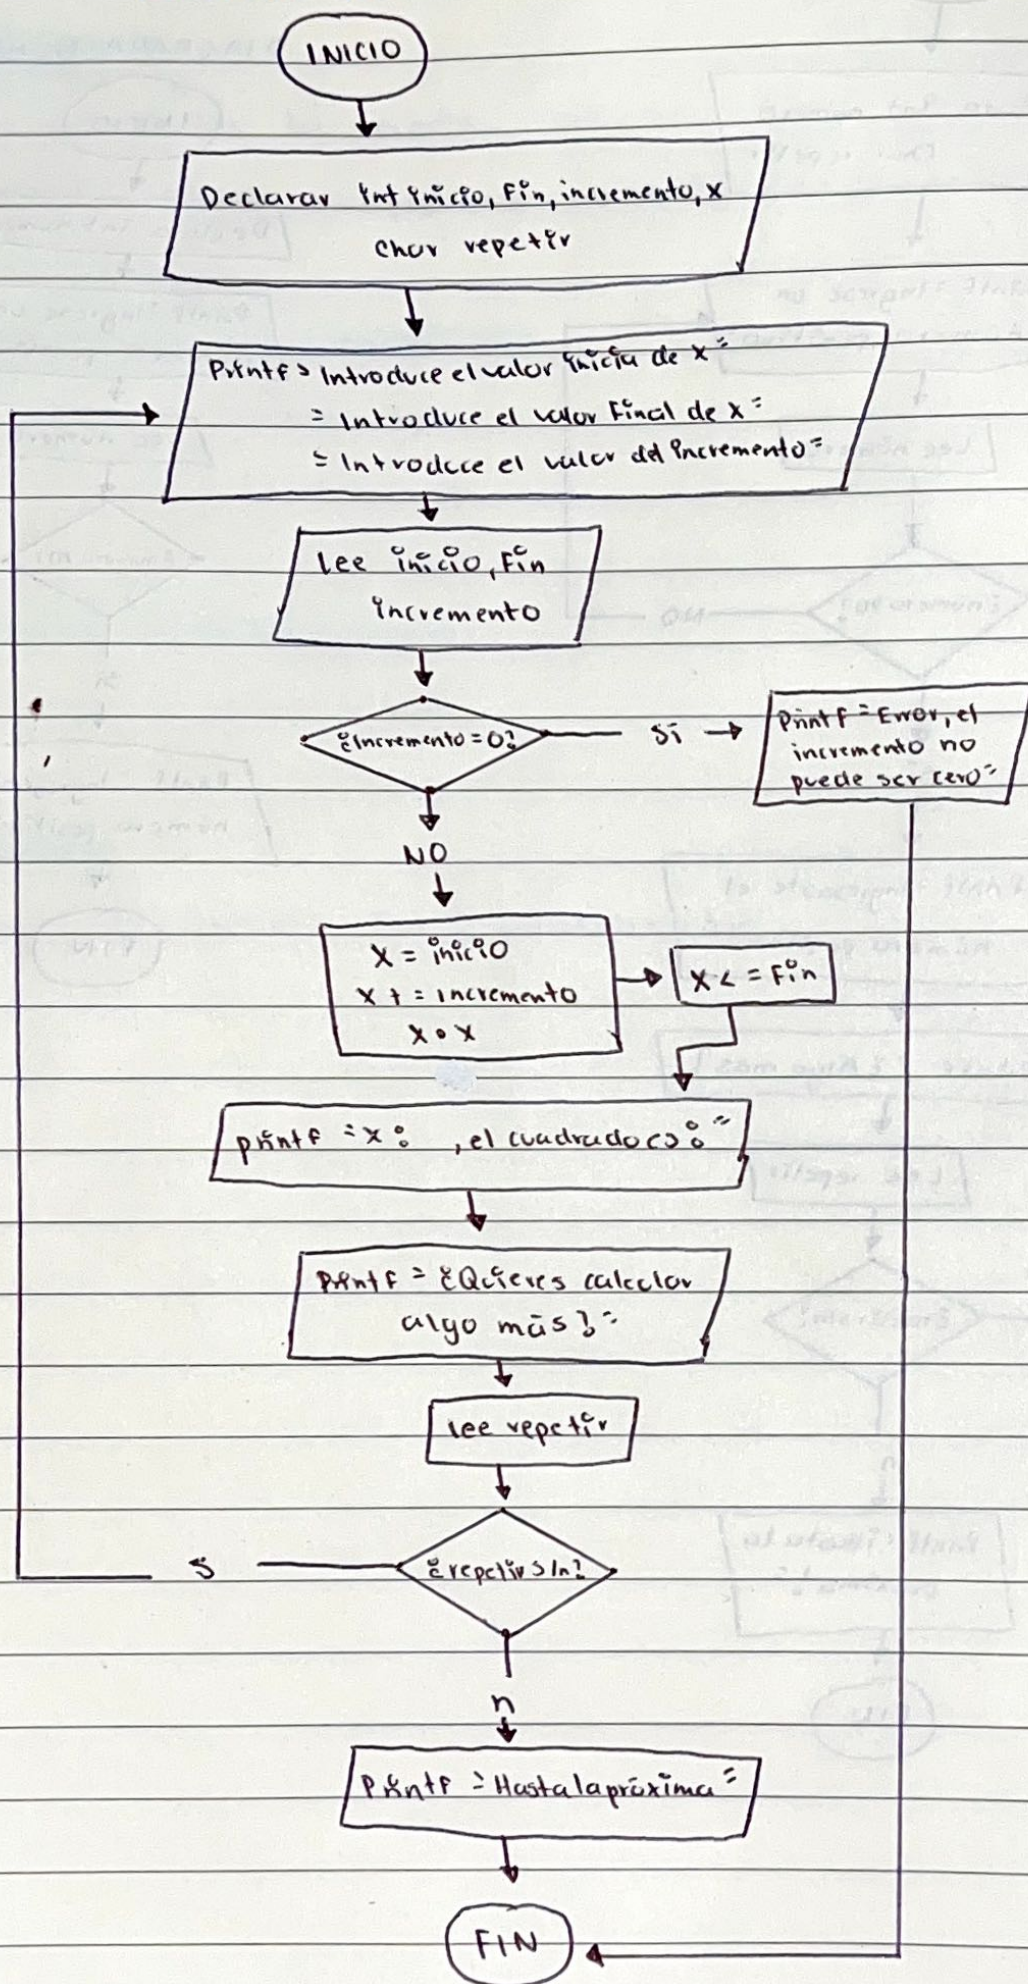 INICIO
Declarar int inicio, Fin, incremento, x
char repetir
Printf > Introduce el valor inicia de x =
= Introduce el valor Final de x =
= Introduce el valor del incremento =
Lee inicio, Fin
incremento
¿Incremento = 0?
Si
Printf = Error, el
incremento no
puede ser cero =
NO
x = inicio
x += incremento
x • x
x <= Fin
printf = x: , el cuadrado es: "
Printf = ¿Quieres calcular
algo más? =
Lee repetir
¿repetir s/n?
S
n
Printf = Hasta la próxima =
FIN